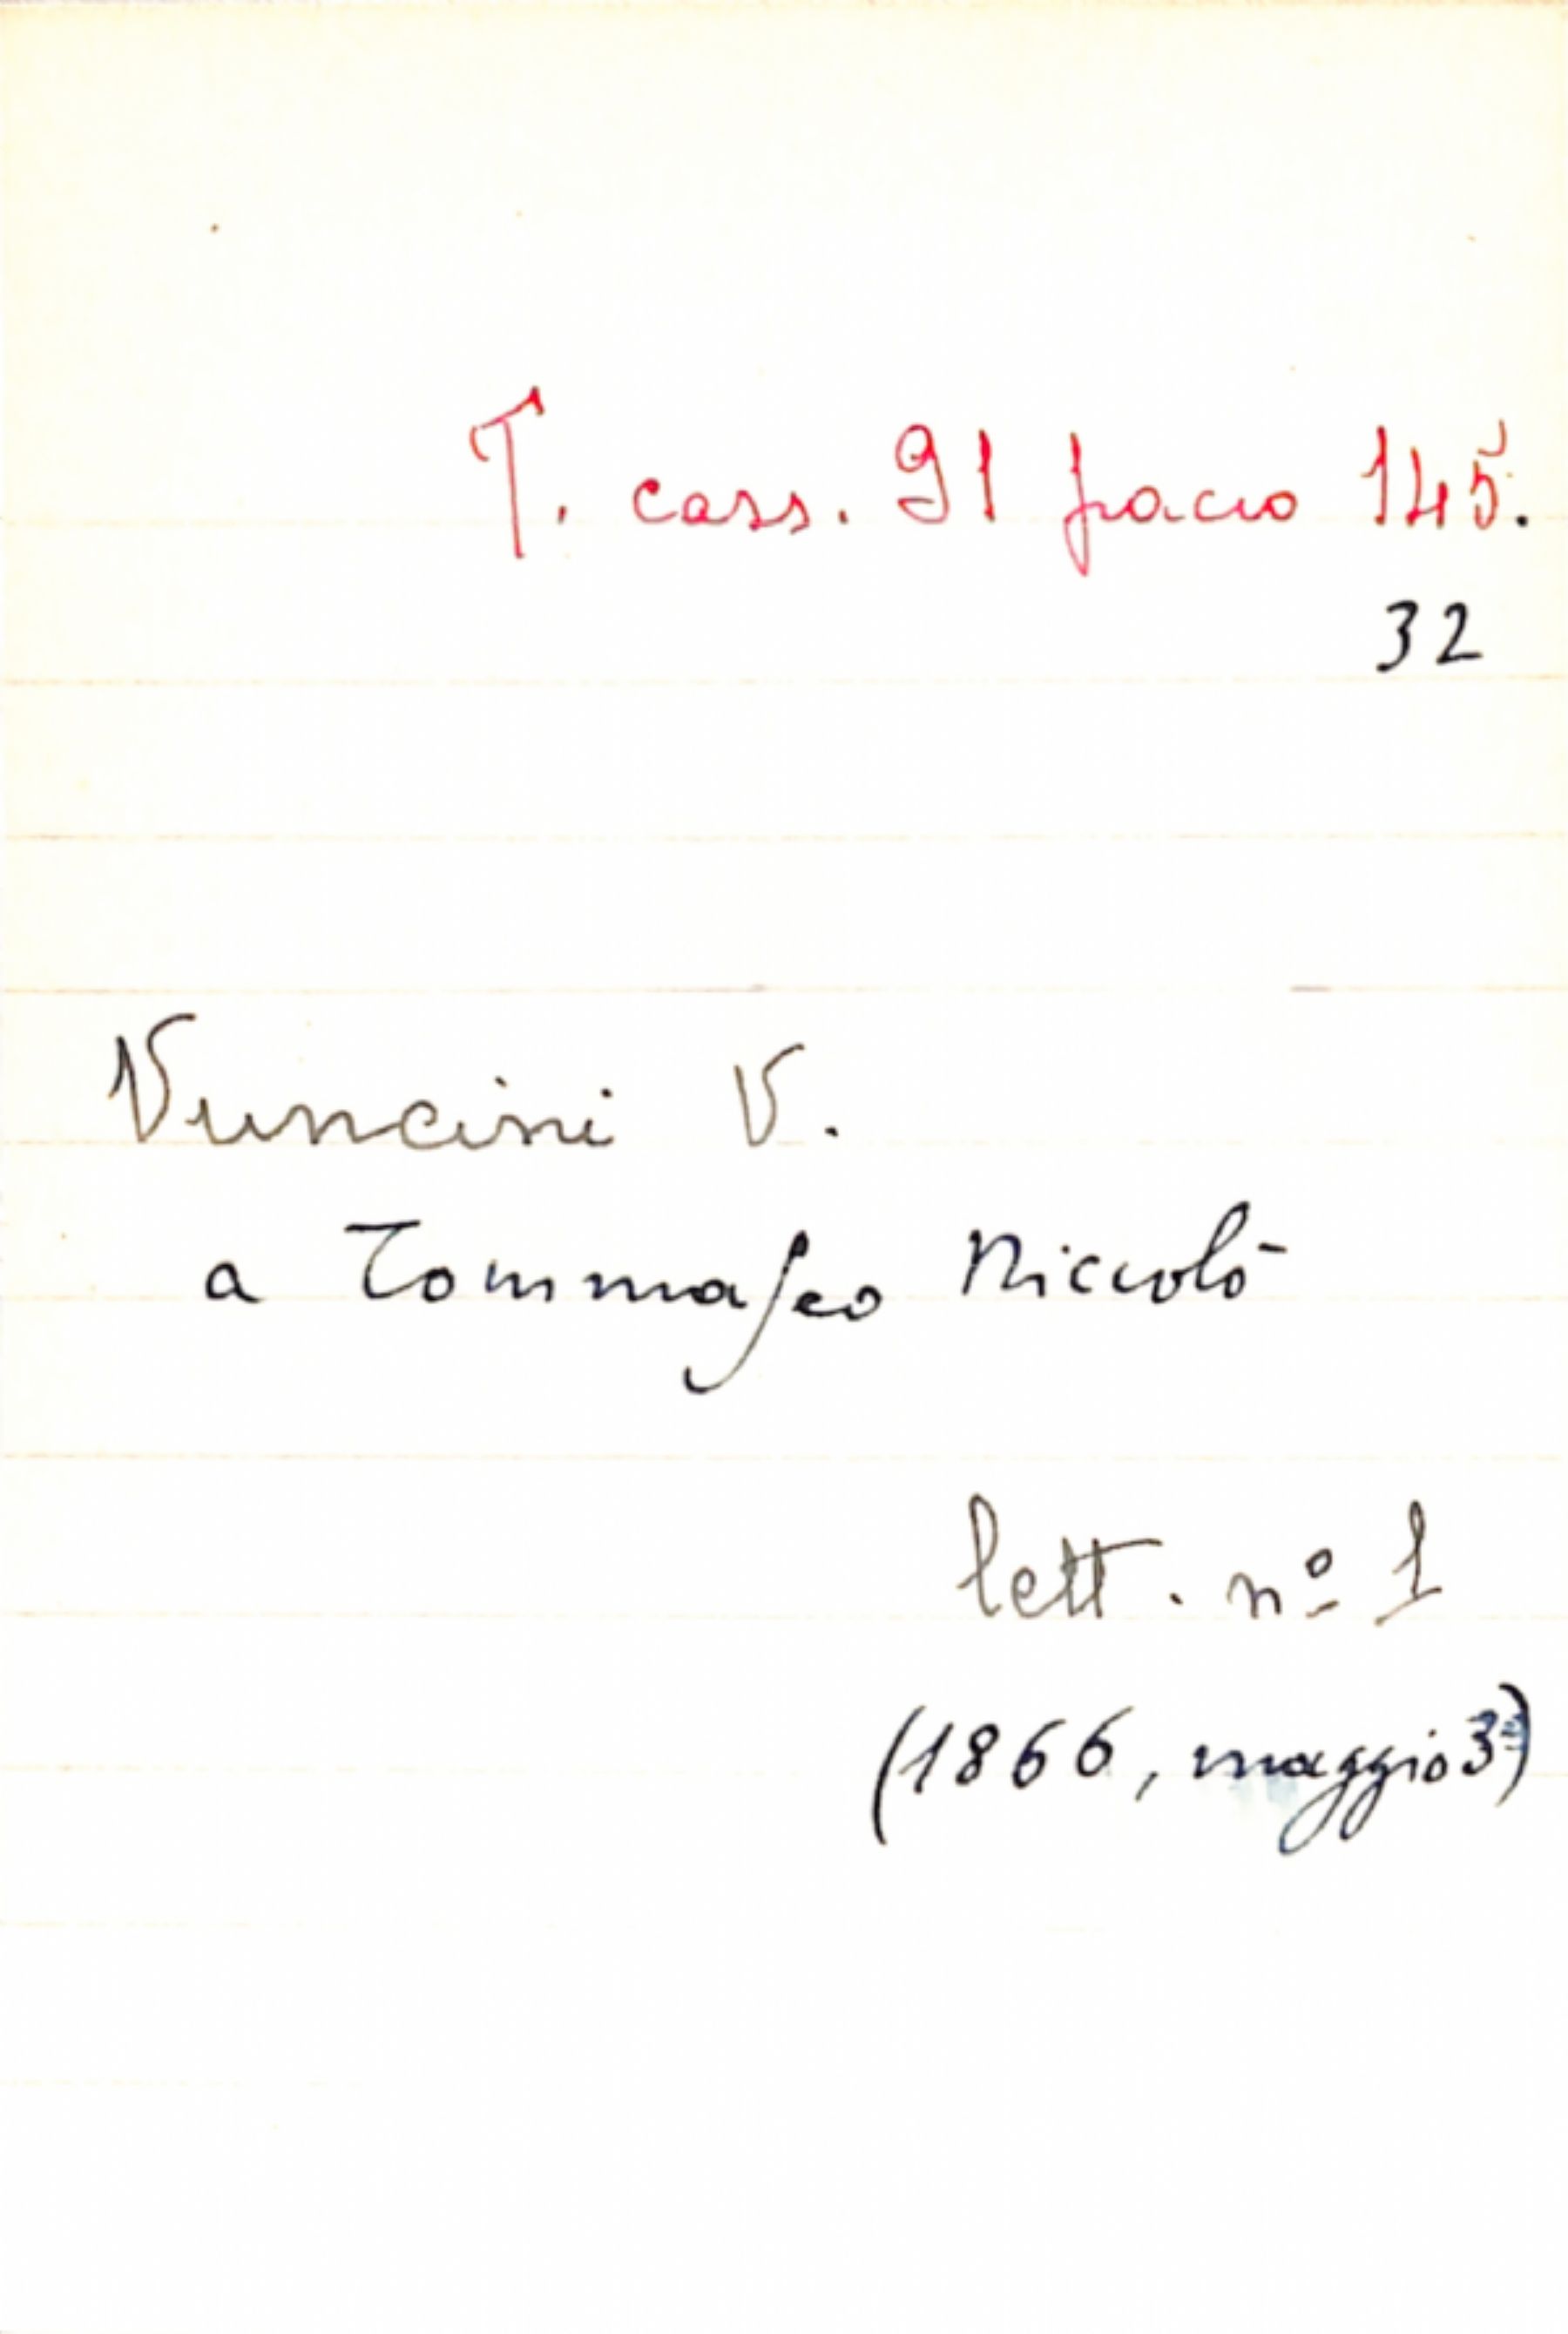 T. cass. 91 pacco 145.
32
Vuncini V.
a Tommaseo Niccolò
lett. nº 1
(1866, maggio 3)